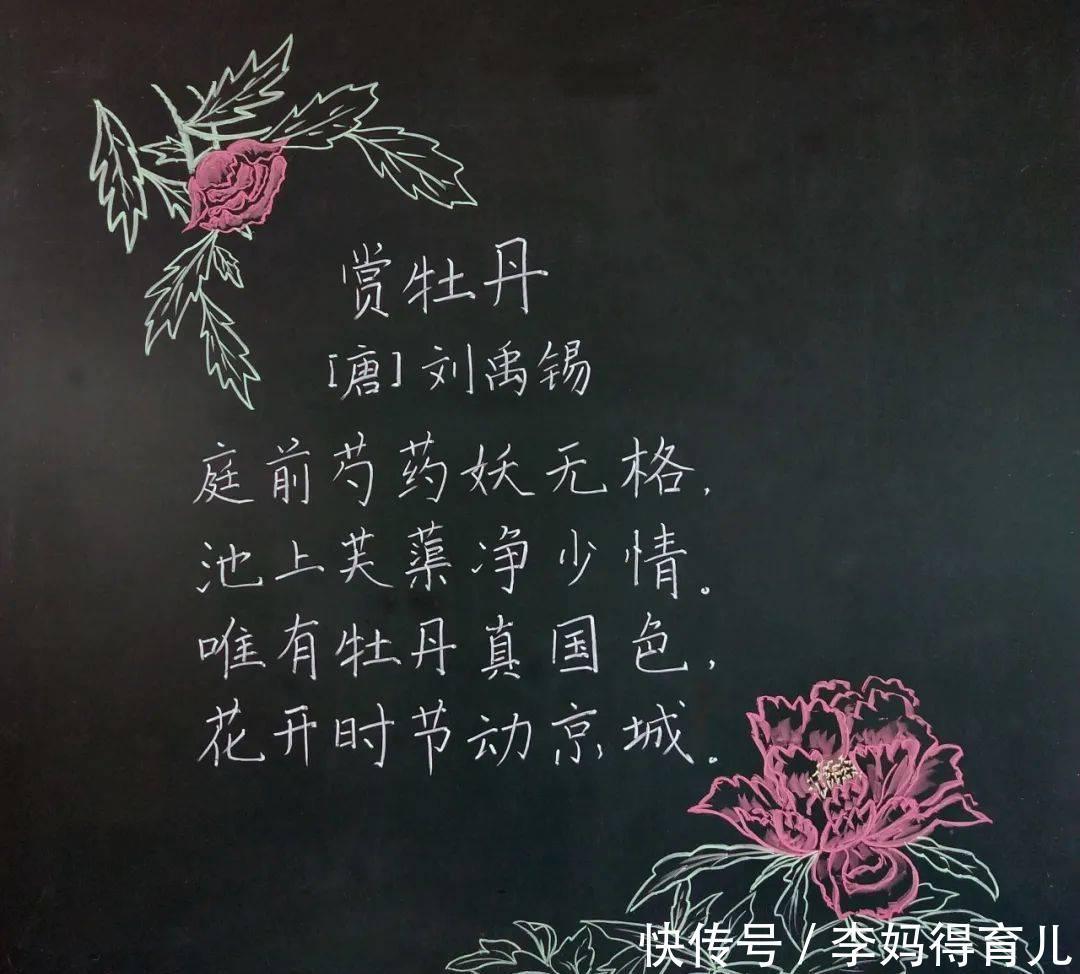 赏牡丹
[唐]刘禹锡
庭前芍药妖无格,
池上芙蕖净少情。
唯有牡丹真国色,
花开时节动京城。
快传号/李妈得育儿